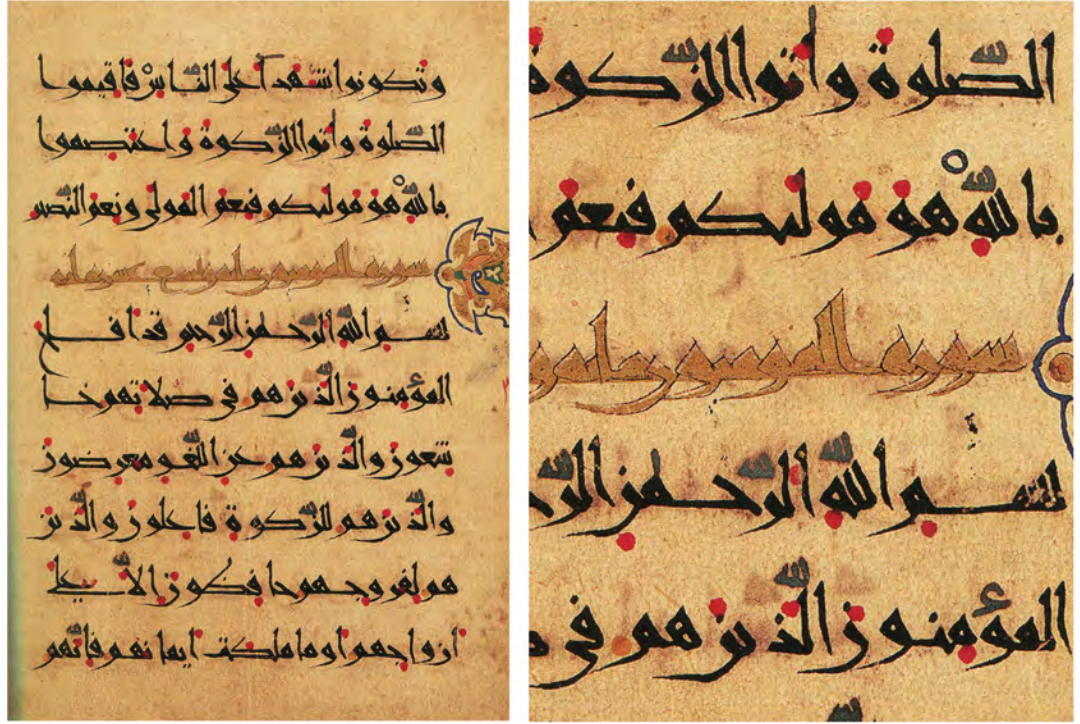 وتكونوا شهدآء على النّاسْ فاقيموا
الصّلوة وأتوا الزّكوة واعتصموا
باللّٰه هو موليكم فنعم المولى ونعم النّصير
سورة المومنون مايه وتسع عشر ايه
بسم اللّه الرّحمن الرّحيم قد افلح
المؤمنون الّذين هم في صلاتهم خا
شعون والّذين هم عن اللّغو معرضون
والّذين هم للزّكوة فاعلون والّذين
هم لفروجهم حافظون الّا على
ازواجهم او ما ملكت ايمانهم فانّهم
الصّلوة وأتوا الزّكوة
باللّه هو موليكم فنعم
سورة المومنون مايه
بسم اللّه الرّحمن
المؤمنون الّذين هم في